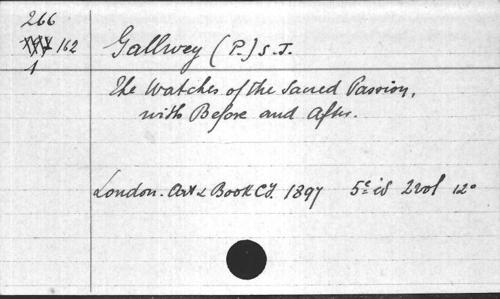 266
162
1
Gallwey (P.) S.J.
The Watches of the Sacred Passion,
with Before and After.
London. Art & Book Cy. 1897 5e éd 2 vol 12°